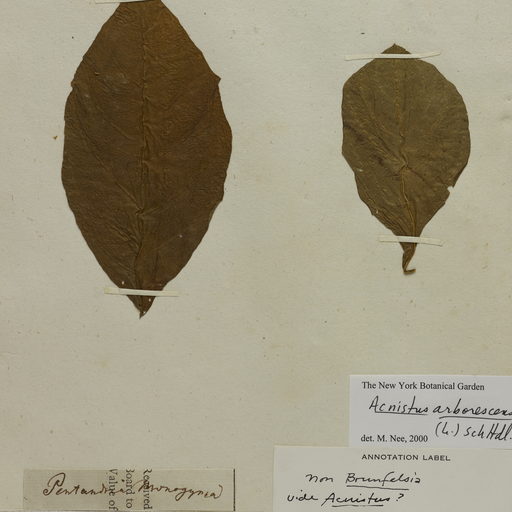 The New York Botanical Garden
Acnistus arborescens
(L.) Schltdl.
det. M. Nee, 2000
ANNOTATION LABEL
non Brunfelsia
vide Acnistus?
Pentandria Monogynia
Received
Board to
Value of